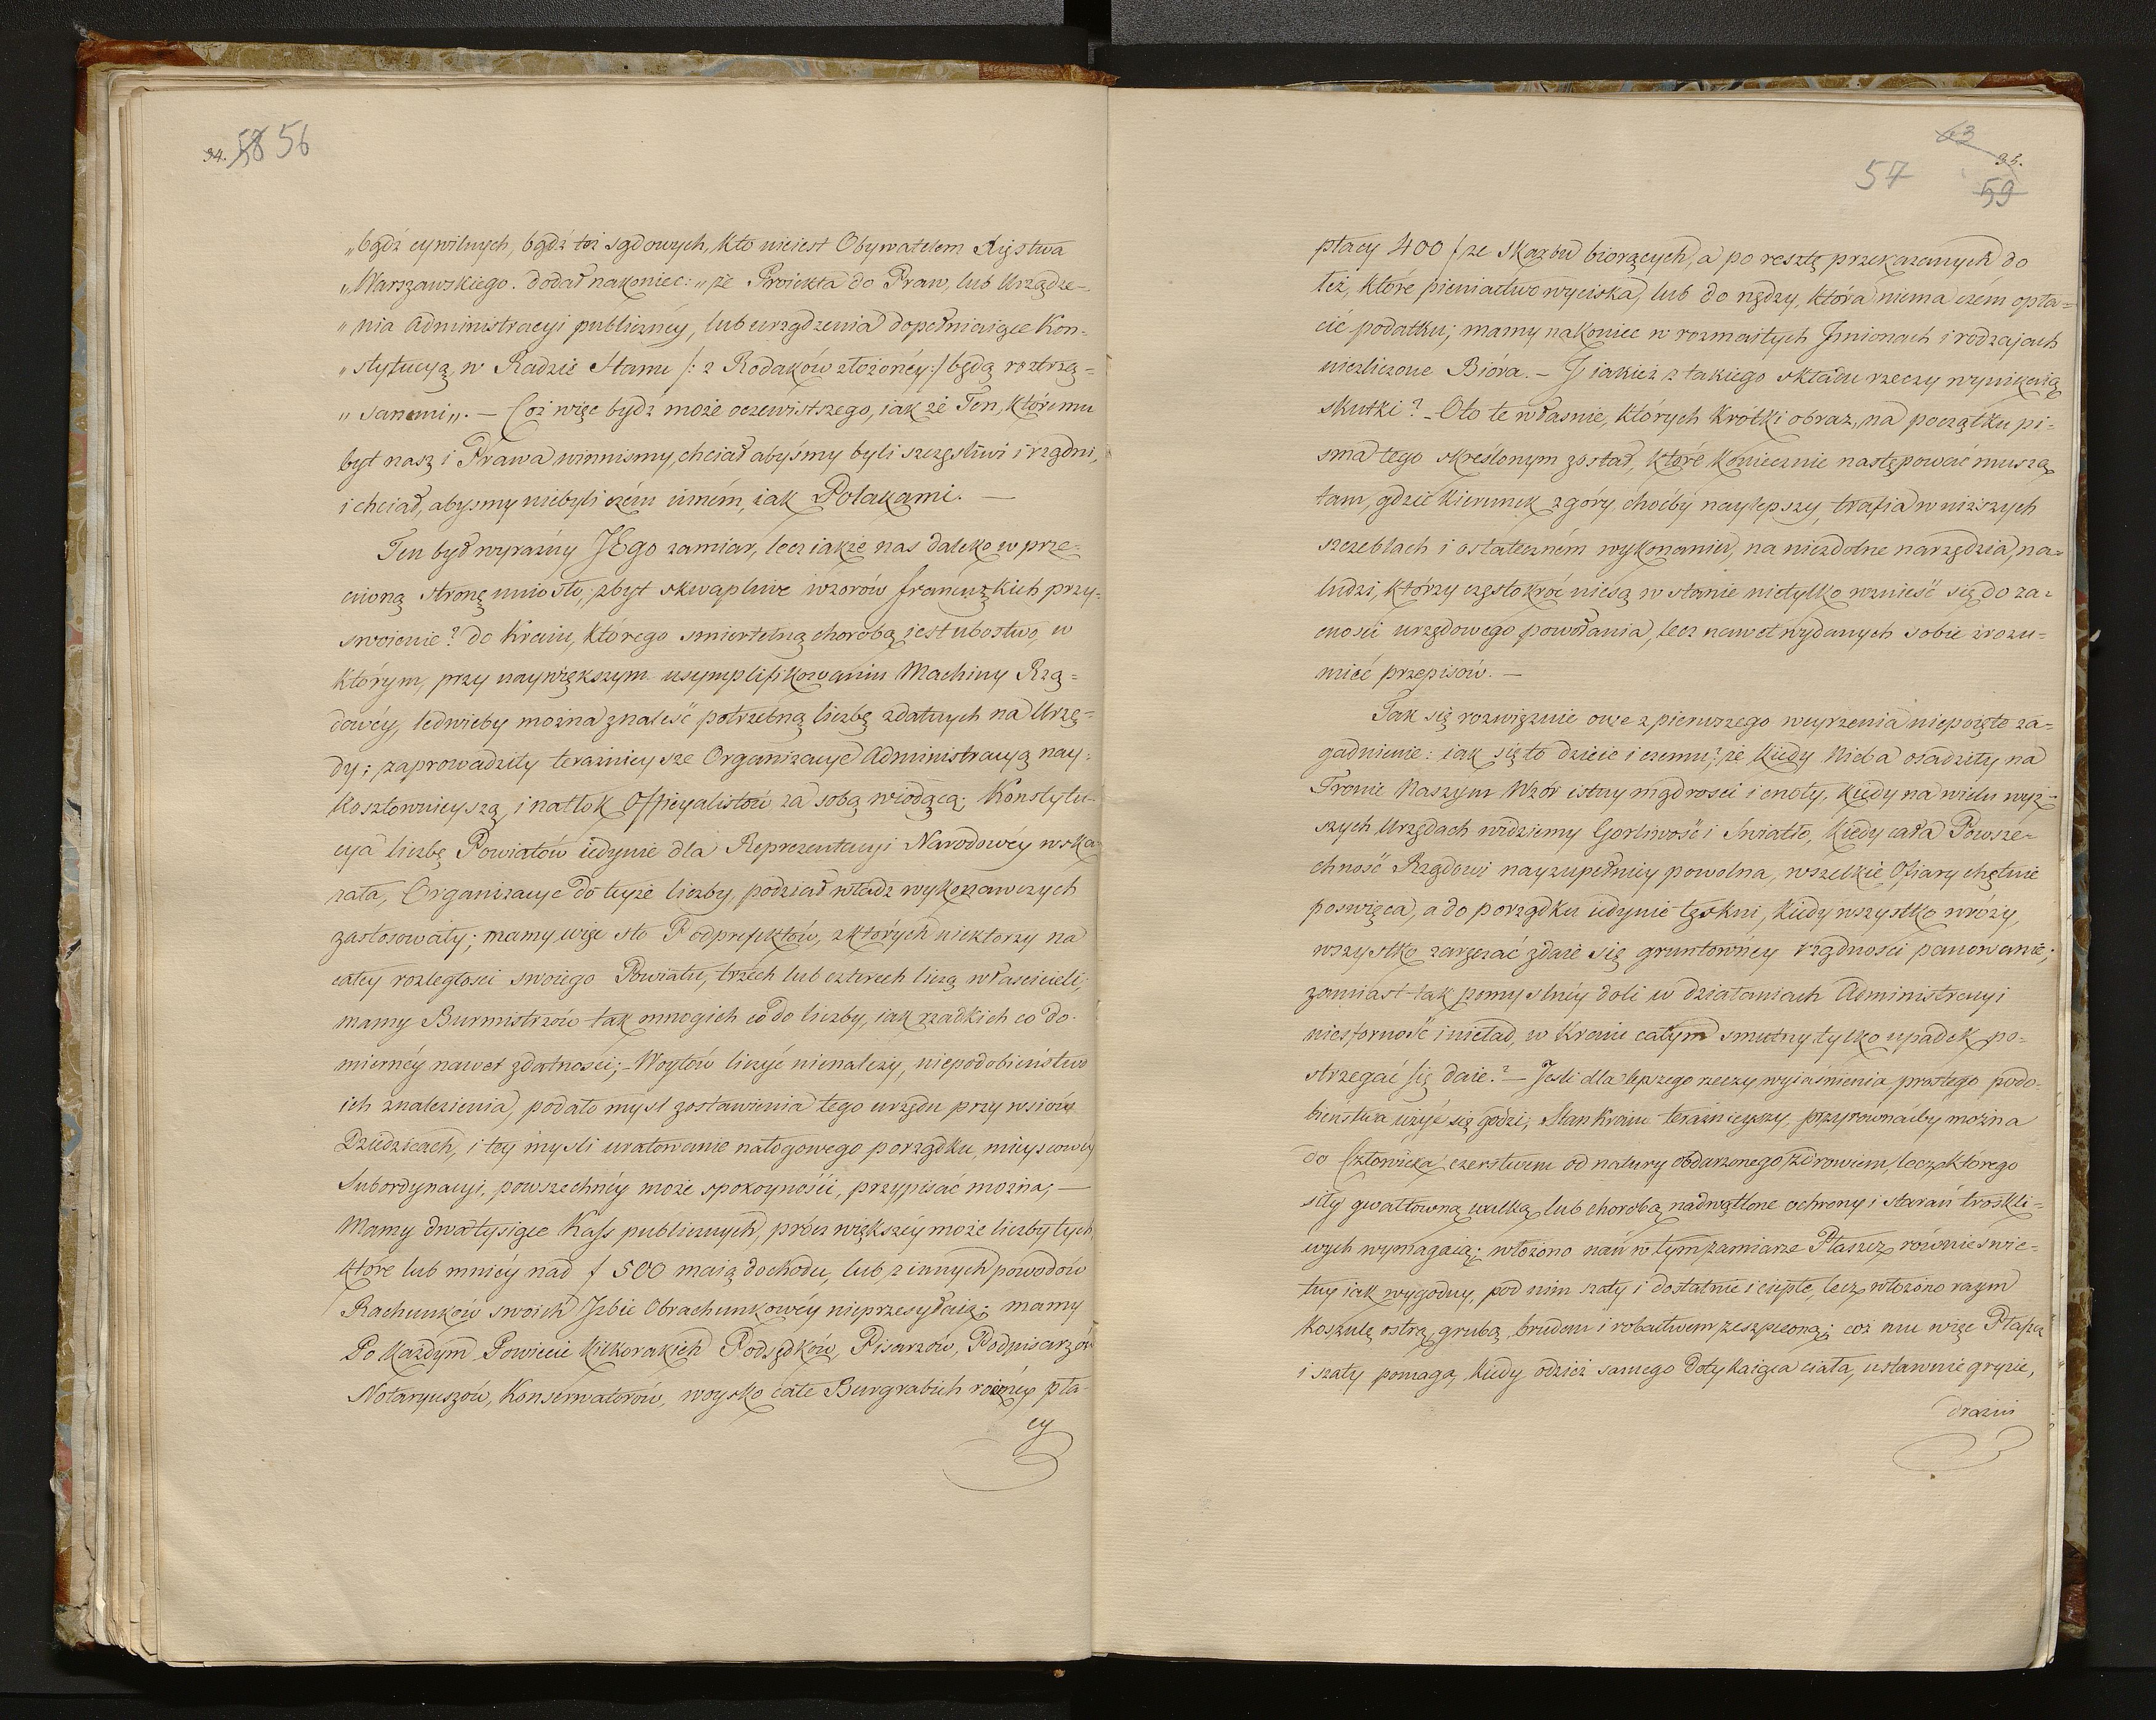 34. 58 56
„bądź cywilnych, bądź też sądowych, kto nieiest Obywatelem Xięstwa
„Warszawskiego. dodał nakoniec: „że Proiekta do Praw, lub Urządze-
„nia Administracyi publicznéy, lub urządzenia dopełniaiące Kon-
„stytucyą, w Radzie Stanu /: z Rodaków złożonéy :/ będą roztrzą-
„sanemi„. — Coż więc bydź może oczewistszego, iak że Ten, któremu
byt nasz i Prawa winnismy, chciał abyśmy byli szczęśliwi i rządni,
i chciał, abysmy niebyli czém inném, iak Polakami. —
Ten był wyraźny JEgo zamiar, lecz iakże nas daleko w prze-
ciwną stronę uniosło, zbyt skwapliwe wzorów francuzkich przy-
swoienie? do Kraiu, którego smiertelną chorobą jest ubostwo, w
którym, przy naywiększym usymplifikowaniu Machiny Rzą-
dowéy, ledwieby można znaleść potrzebną liczbę zdatnych na Urzę-
dy; zaprowadziły teraźnieysze Organizacye Administracyą nay-
kosztownieyszą, i natłok Officyalistów za sobą wiodącą; Konstytu-
cya liczbę Powiatów iedynie dla Reprezentacyi Narodowéy wska-
zała, Organizacye do teyże liczby, podział władz wykonawczych
zastosowały; mamy więc sto Podprefektów, z których niektorzy na
całey rozległosci swoiego Powiatu, trzech lub czterech liczą właścicieli;
mamy Burmistrzów tak mnogich co do liczby, iak rzadkich co do
miernéy nawet zdatności; - Woytów liczyć nienależy, niepodobieństwo
ich znalezienia, podało mysl zostawienia tego urzędu przy wsiów
Dziedzicach, i tey mysli uratowanie nałogowego porządku, mieyscowéy
Subordynacyi, powszechnéy może spokoyności, przypisać można; —
Mamy dwa tysiące Kass publicznych, prócz większéy może liczby tych,
które lub mniey nad f 500 maią dochodu, lub z innych powodów
Rachunków swoich Izbie Obrachunkowéy nieprzesyłaią; mamy
Po każdym Powiecie kilkorakich Podsędków, Pisarzów, Podpisarzów
Notaryuszów, Konserwatorów, woysko całe Burgrabich rózney pła-
cy
63
35.
57 59
płacy 400 f ze skarbu biorących, a po resztę przekazanych do
łéz, które pieniactwo wyciska, lub do nędzy, która niema czém opła-
cić podatku; mamy nakoniec w rozmaitych Imionach i rodzajach
niezliczone Bióra. — I iakież z takiego składu rzeczy wynikaią
skutki? - Oto te własnie, których krótki obraz, na początku pi-
sma tego skreślonym został, które koniecznie następować muszą
tam, gdzie kierunek z góry, choćby naylepszy, trafia w niższych
szczeblach i ostateczném wykonaniu, na niezdolne narzędzia, na
ludzi, którzy częstokroć niesą w stanie nietylko wznieść się do za-
cności urzędowego powołania, lecz nawet wydanych sobie zrozu-
mieć przepisów. —
Tak się rozwięzuie owe z pierwszego weyrzenia niepoięte za-
gadnienie: iak się to dzieie i czemu? że kiedy Nieba osadziły na
Tronie Naszym Wzór istny mądrosci i cnoty, kiedy na wielu wyż-
szych Urzędach widziemy Gorliwość i Swiatło, kiedy cała Powsze-
chność Rządowi nayzupełniey powolna, wszelkie Ofiary chętnie
poswięca, a do porządku iedynie tęskni, kiedy wszystko wróży,
wszystko zaręczać zdaie się gruntownéy rządności panowanie;
zamiast tak pomyslnéy doli w działaniach Administracyi
niesforność i nieład, w Kraiu całym smutny tylko upadek po-
strzegać się daie? — Jesli dla lepszego rzeczy wyiaśnienia prostego podo-
bienstwa użyć się godzi, Stan Kraiu teraźnieyszy, przyrownaćby można
do Człowieka czerstwem od natury obdarzonego zdrowiem, lecz którego
siły gwałtowną walką lub chorobą nadwątlone ochrony i starań troskli-
wych wymagaią; włożono nań w tym zamiarze Płaszcz, równie swie-
tny iak wygodny, pod nim szaty i dostatnie i ciepłe, lecz włożono razem
koszulę ostrą, grubą, brudem i robactwem zeszpeconą; coż mu więc Płaszcz
i szaty pomagą, kiedy odzież samego dotykaiąca ciała, ustawnie gryzie,
drazni